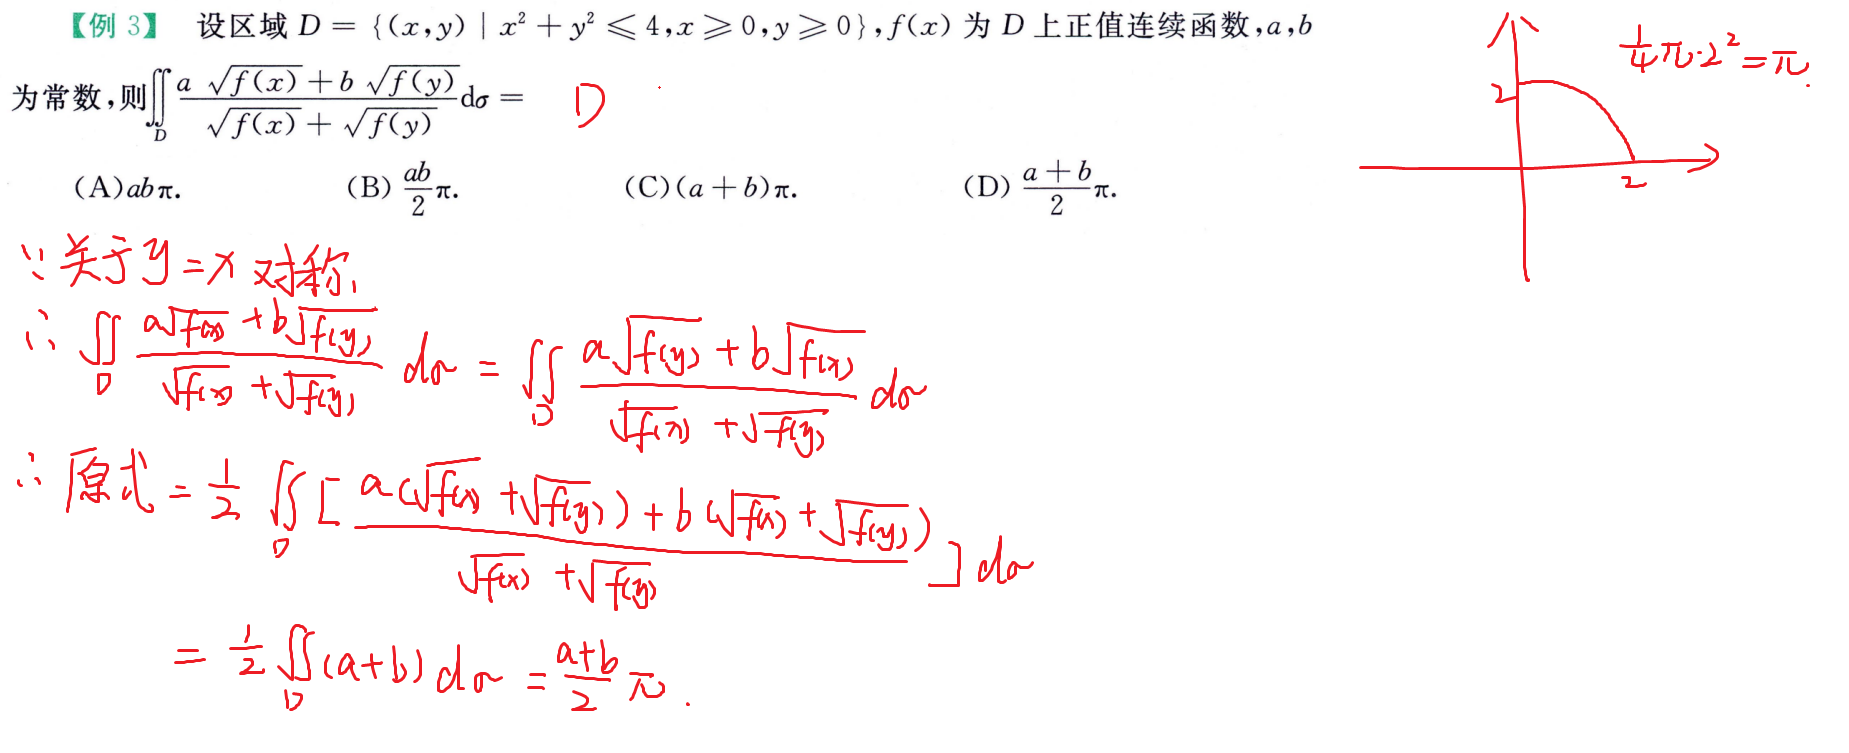 【例 3】 设区域 D = {(x,y) | x² + y² ⩽ 4,x ⩾ 0,y ⩾ 0},f(x) 为 D 上正值连续函数,a,b
为常数,则∬_D (a√f(x) + b√f(y))/(√f(x) + √f(y)) dσ = D
(A)abπ. (B) ab/2 π. (C)(a + b)π. (D) (a + b)/2 π.
1/4 π·2² = π.
2
2
∵ 关于 y = x 对称,
∴ ∬_D (a√f(x) + b√f(y))/(√f(x) + √f(y)) dσ = ∬_D (a√f(y) + b√f(x))/(√f(x) + √f(y)) dσ
∴ 原式 = 1/2 ∬_D [ (a(√f(x) + √f(y)) + b(√f(x) + √f(y)))/(√f(x) + √f(y)) ] dσ
= 1/2 ∬_D (a+b) dσ = (a+b)/2 π.